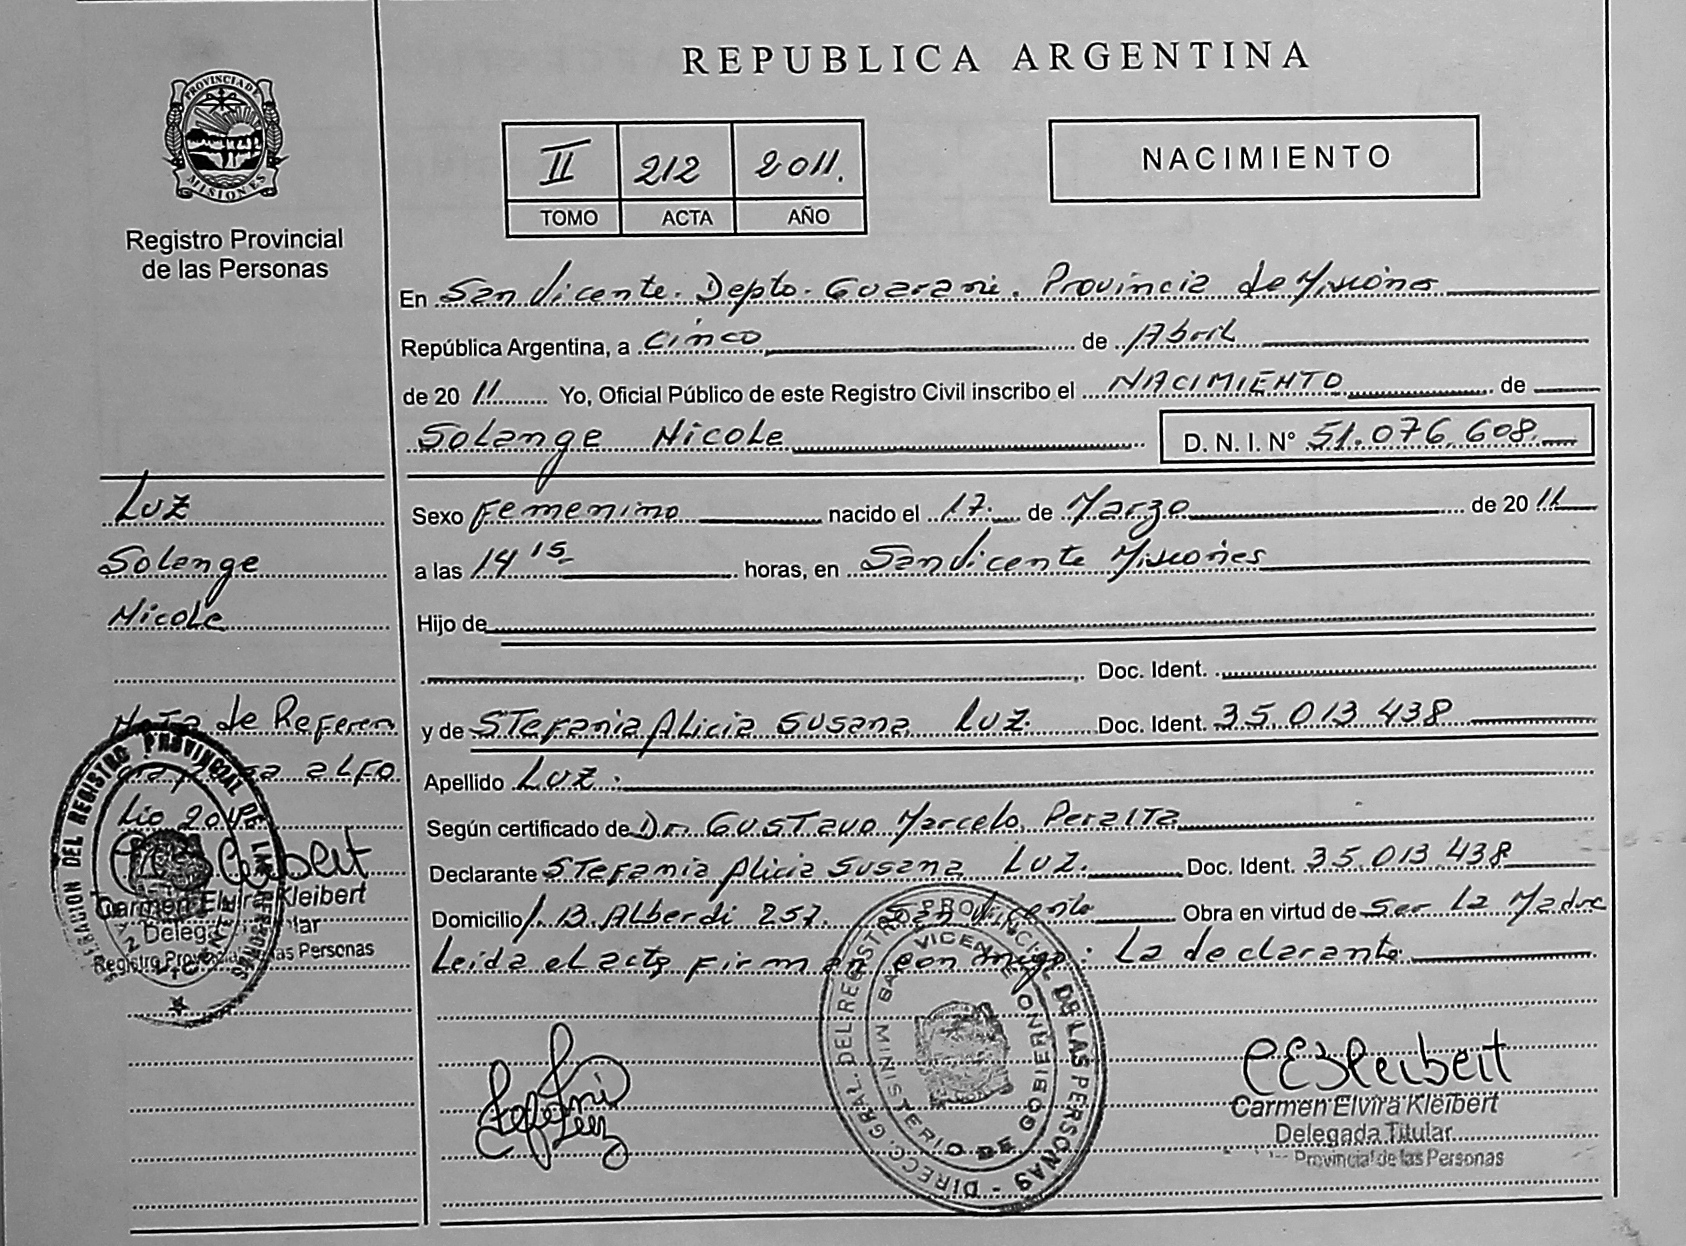 REPUBLICA ARGENTINA
PROVINCIA DE MISIONES
Registro Provincial
de las Personas
II 212 2011.
TOMO ACTA AÑO
NACIMIENTO
En San Vicente. Depto. Guarani. Provincia de Misiones
República Argentina, a Cinco de Abril
de 2011 Yo, Oficial Público de este Registro Civil inscribo el NACIMIENTO de
Solange Nicole D. N. I. N° 51.076.608
Luz
Solange
Nicole
Sexo Femenino nacido el 17 de Marzo de 2011
a las 14 15 horas, en San Vicente Misiones
Hijo de
Doc. Ident.
y de Stefania Alicia Susana Luz. Doc. Ident. 35.013.438
Apellido Luz.
Según certificado de Dr. Gustavo Marcelo Peralta
Declarante Stefania Alicia Susana Luz. Doc. Ident. 35.013.438
Domicilio J. B. Alberdi 257. San Vicente Obra en virtud de Ser La Madre
Leida el acta firman conmigo: La declarante
Nota de Referen
alfo
lio 204
Carmen Elvira Kleibert
Registro Provincial de las Personas
DIRECC. GRAL. DEL REGISTRO PROVINCIAL DE LAS PERSONAS
MINISTERIO DE GOBIERNO
VICENTE
Stefani Luz
CEKleibert
Carmen Elvira Kleibert
Delegada Titular
Provincial de las Personas